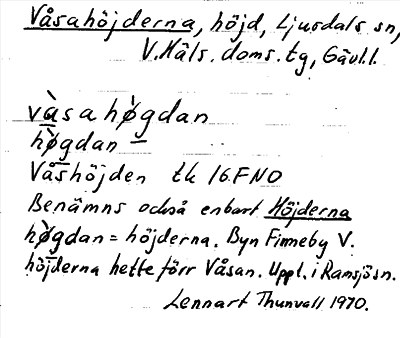 Våsahöjderna, höjd, Ljusdals sn,
V. Häls. doms. tg, Gävl.l.
vàsahø̀gdan
hø̀gdan –
Våshöjden tk 16FNO
Benämns också enbart Höjderna
hø̀gdan = höjderna. Byn Finneby V.
höjderna hette förr Våsan. Uppl. i Ramsjösn.
Lennart Thunvall 1970.